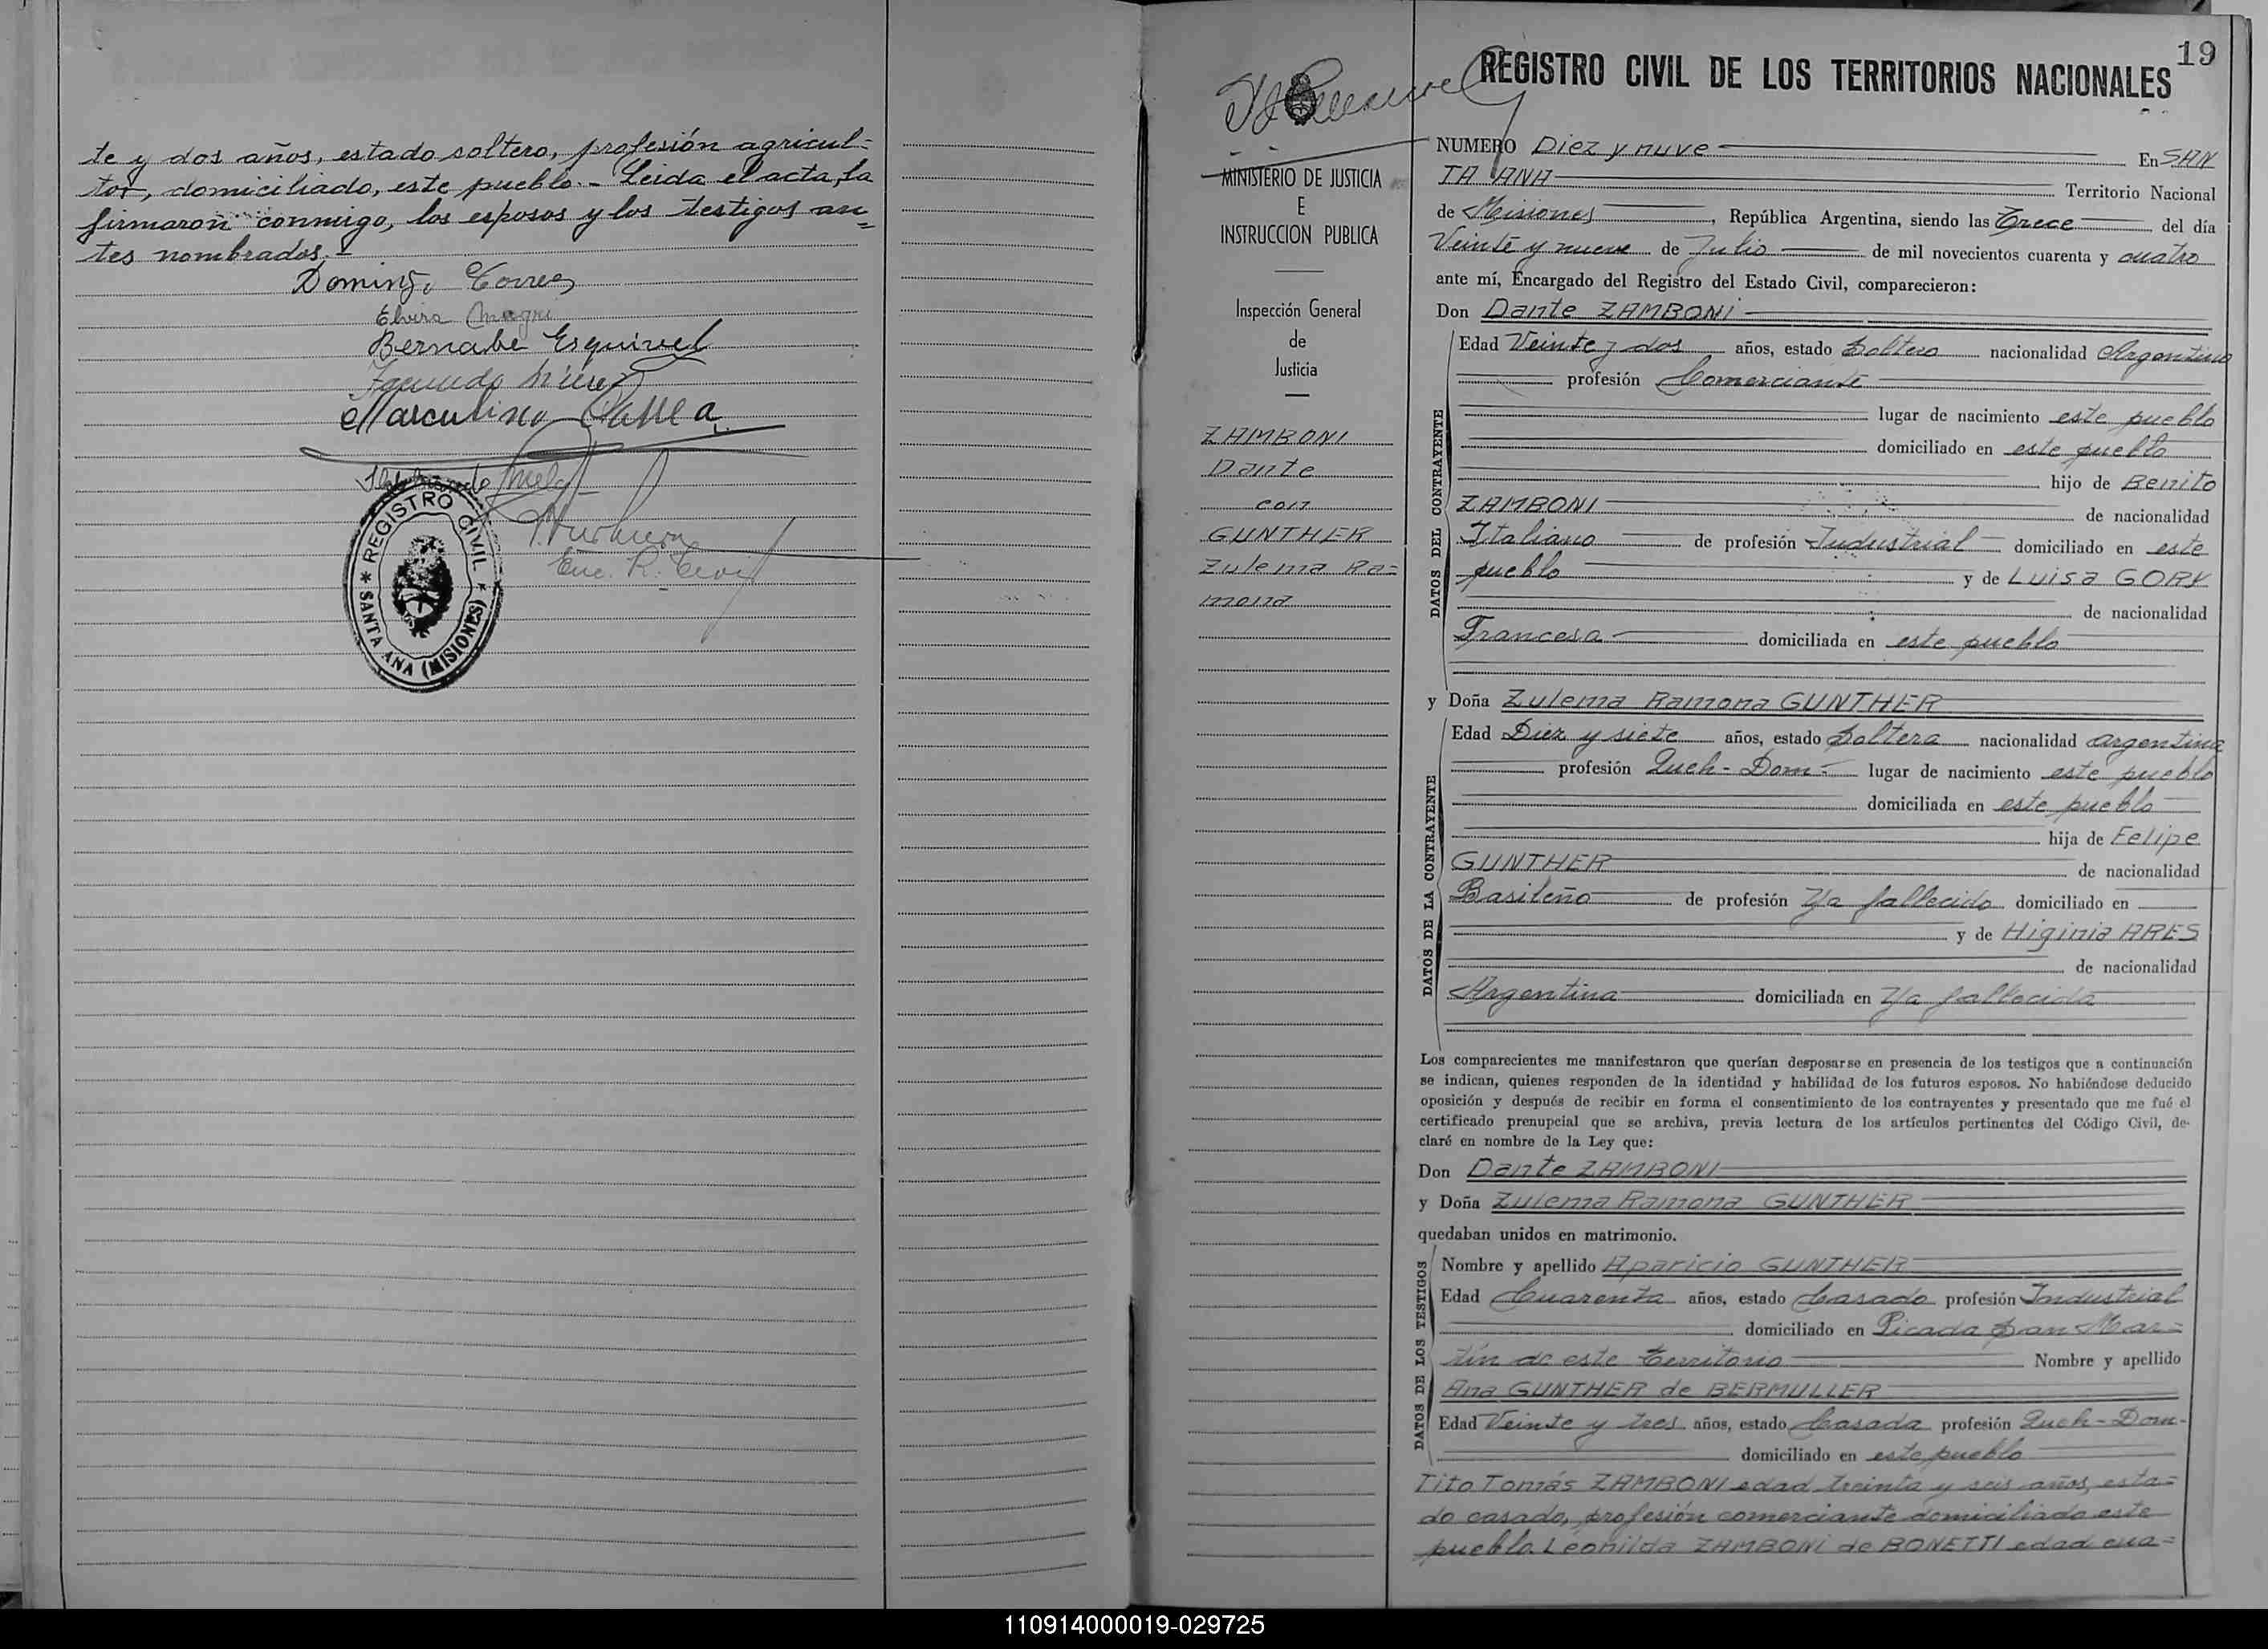 te y dos años, estado soltero, profesión agricul=
tor, domiciliado, este pueblo.- Leida el acta, la
firmaron conmigo, los esposos y los testigos an=
tes nombrados.-
Domingo Correa
Elvira
Bernabe Esquivel
Marculino
Enc. R. Civil
REGISTRO CIVIL
SANTA ANA (MISIONES)
19
REGISTRO CIVIL DE LOS TERRITORIOS NACIONALES
MINISTERIO DE JUSTICIA
E
INSTRUCCION PUBLICA
Inspección General
de
Justicia
ZAMBONI
Dante
con
GUNTHER
Zulema Ra=
mona
NUMERO Diez y nuve En SAN
TA ANA Territorio Nacional
de Misiones, República Argentina, siendo las Trece del día
Veinte y nueve de Julio de mil novecientos cuarenta y cuatro
ante mí, Encargado del Registro del Estado Civil, comparecieron:
Don Dante ZAMBONI
DATOS DEL CONTRAYENTE
Edad Veinte y dos años, estado Soltero nacionalidad Argentino
profesión Comerciante
lugar de nacimiento este pueblo
domiciliado en este pueblo
hijo de Benito
ZAMBONI de nacionalidad
Italiano de profesión Industrial domiciliado en este
pueblo y de Luisa GORY
de nacionalidad
Francesa domiciliada en este pueblo
y Doña Zulema Ramona GUNTHER
DATOS DE LA CONTRAYENTE
Edad Diez y siete años, estado Soltera nacionalidad argentina
profesión Queh-Dom- lugar de nacimiento este pueblo
domiciliada en este pueblo
hija de Felipe
GUNTHER de nacionalidad
Basileño de profesión Ya fallecido domiciliado en
y de Higinia ARES
de nacionalidad
Argentina domiciliada en Ya fallecida
Los comparecientes me manifestaron que querían desposarse en presencia de los testigos que a continuación
se indican, quienes responden de la identidad y habilidad de los futuros esposos. No habiéndose deducido
oposición y después de recibir en forma el consentimiento de los contrayentes y presentado que me fué el
certificado prenupcial que se archiva, previa lectura de los artículos pertinentes del Código Civil, de-
claré en nombre de la Ley que:
Don Dante ZAMBONI
y Doña Zulema Ramona GUNTHER
quedaban unidos en matrimonio.
DATOS DE LOS TESTIGOS
Nombre y apellido Aparicio GUNTHER
Edad Cuarenta años, estado Casado profesión Industrial
domiciliado en Picada San Mar=
tín de este Territorio Nombre y apellido
Ana GUNTHER de BERMULLER
Edad Veinte y tres años, estado Casada profesión Queh-Dom-
domiciliado en este pueblo
Tito Tomás ZAMBONI edad treinta y seis años, esta=
do casado, profesión comerciante domiciliado este
pueblo. Leonilda ZAMBONI de BONETTI edad cua=
110914000019-029725